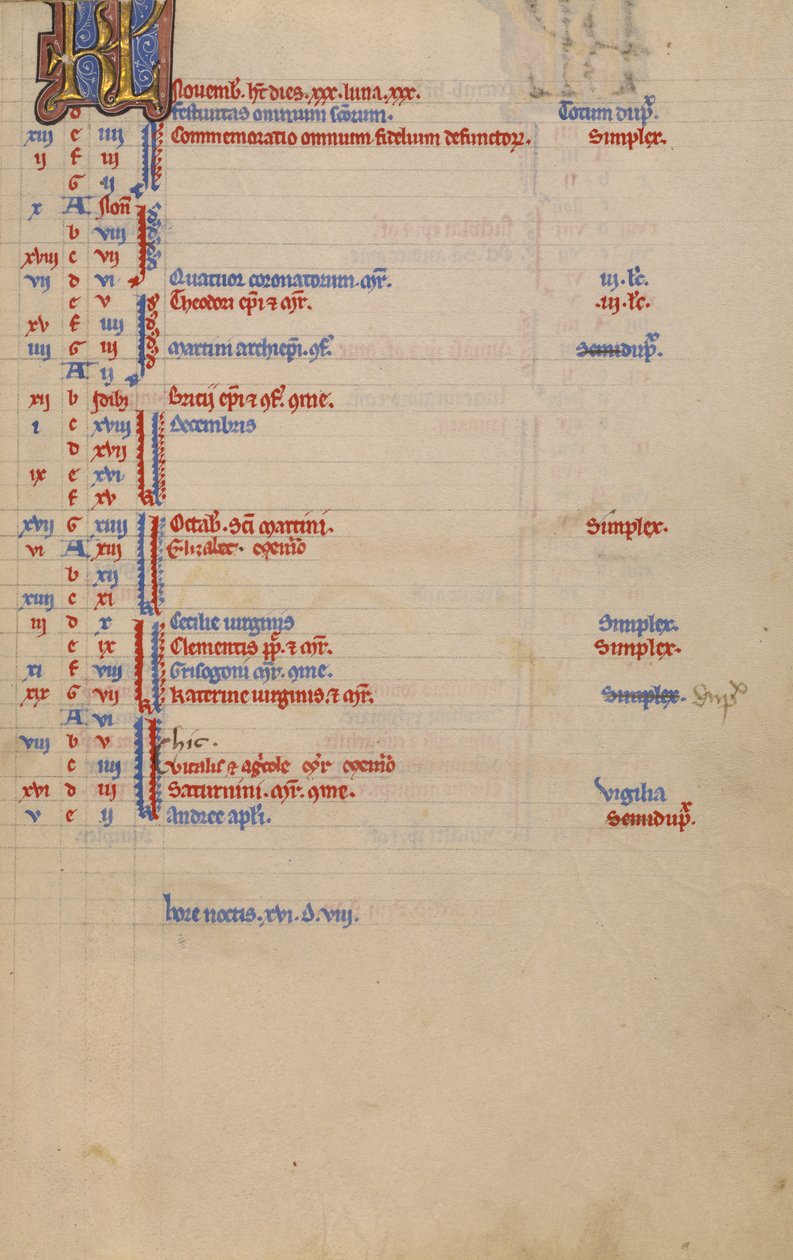 KL Novemb. ht dies. xxx. luna. xxx.
d festivitas omnium scorum. Totum dupx.
xiii e iiii Commemoratio omnium fidelium defunctor. Simplex.
ii f iii
G ii
x A Non
b viii
xviii c vii
vii d vi Quatuor coronatorum. mr. iii. lc.
e v Theodori epi et mr. iii. lc.
xv f iiii
iiii G iii martini archiepi. 9f. Semidupx.
A ii
xii b Idib Bricii epi et 9f. 9me.
i c xviii Decembris
d xvii
ix e xvi
f xv
xvii G xiiii Octab. Sci martini. Simplex.
vi A xiii Elizabet. memo
b xii
xiiii c xi
iii d x Cecilie virginis Simplex.
e ix Clementis pp. et mr. Simplex.
xi f viii Grisogoni mr. 9me.
xix G vii Katerine virginis. et mr. Simplex. dupx
A vi
viii b v hic.
c iiii vitalis et agricole mr memo
xvi d iii Saturnini. mr. 9me. Vigilia
v e ii Andree apli. Semidupx.
hore noctis. xvi. d. viii.